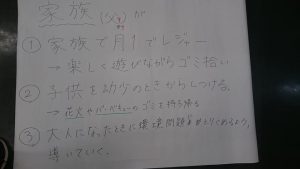 家族(父)が
① 家族で月1でレジャー
→ 楽しく遊びながらゴミ拾い
② 子供を幼少のときからしつける。
→ 花火やバーベキューのゴミを持ち帰る
③ 大人になったときに環境問題がとりくめるよう、
導いていく。